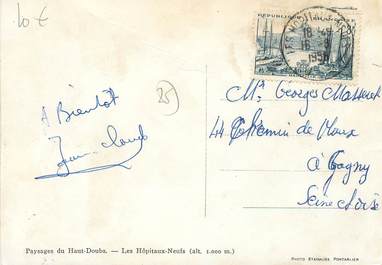 10€
RÉPUBLIQUE FRANÇAISE
18 H
16
1956
25
A Bientôt
Jean-claude
Mr Georges
44 Chemin de
à Gagny
Seine et oise
Paysages du Haut-Doubs. — Les Hôpitaux-Neufs (alt. 1.000 m.)
PHOTO STAINACRE PONTARLIER